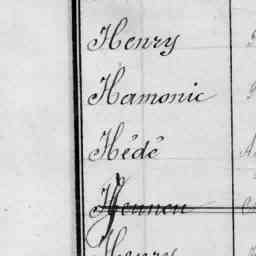 Henry
Hamonic
Hédé
Hennen
Henry